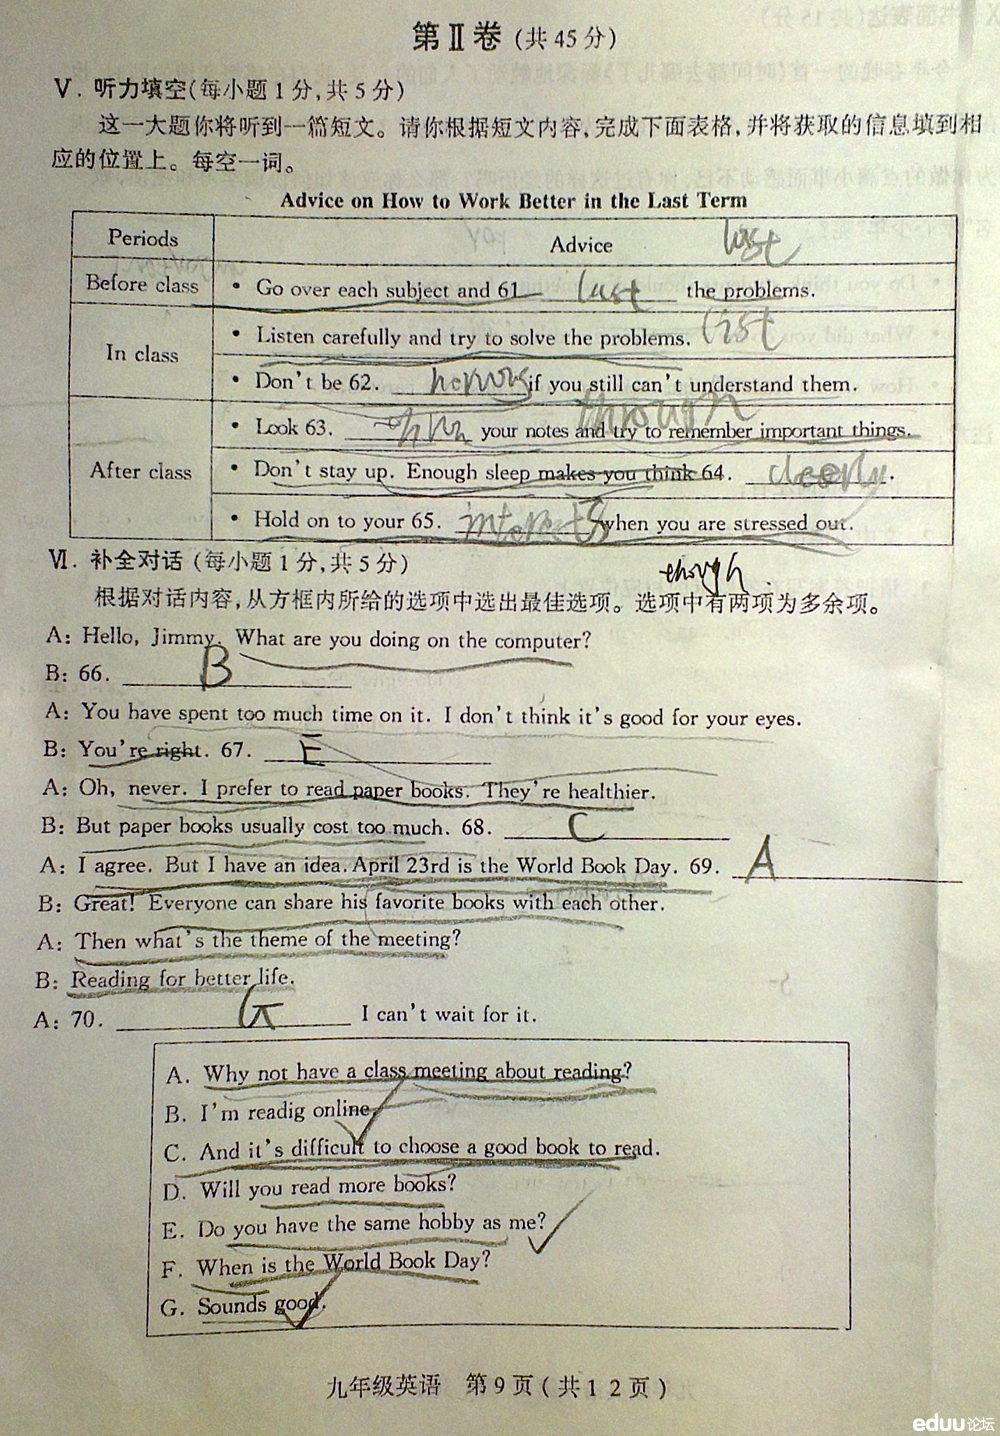 第Ⅱ卷(共45分)
Ⅴ. 听力填空(每小题1分,共5分)
这一大题你将听到一篇短文。请你根据短文内容,完成下面表格,并将获取的信息填到相
应的位置上。每空一词。
Advice on How to Work Better in the Last Term
Periods
Advice
list
Before class
• Go over each subject and 61 last the problems.
In class
• Listen carefully and try to solve the problems.
list
• Don't be 62. nervous if you still can't understand them.
through
After class
• Look 63. your notes and try to remember important things.
• Don't stay up. Enough sleep makes you think 64. clearly.
• Hold on to your 65. interests when you are stressed out.
Ⅵ. 补全对话(每小题1分,共5分)
though
根据对话内容,从方框内所给的选项中选出最佳选项。选项中有两项为多余项。
A: Hello, Jimmy. What are you doing on the computer?
B: 66. B
A: You have spent too much time on it. I don't think it's good for your eyes.
B: You're right. 67. E
A: Oh, never. I prefer to read paper books. They're healthier.
B: But paper books usually cost too much. 68. C
A: I agree. But I have an idea. April 23rd is the World Book Day. 69. A
B: Great! Everyone can share his favorite books with each other.
A: Then what's the theme of the meeting?
B: Reading for better life.
A: 70. G I can't wait for it.
A. Why not have a class meeting about reading?
B. I'm readig online.
C. And it's difficult to choose a good book to read.
D. Will you read more books?
E. Do you have the same hobby as me?
F. When is the World Book Day?
G. Sounds good.
九年级英语 第9页(共12页)
eduu论坛